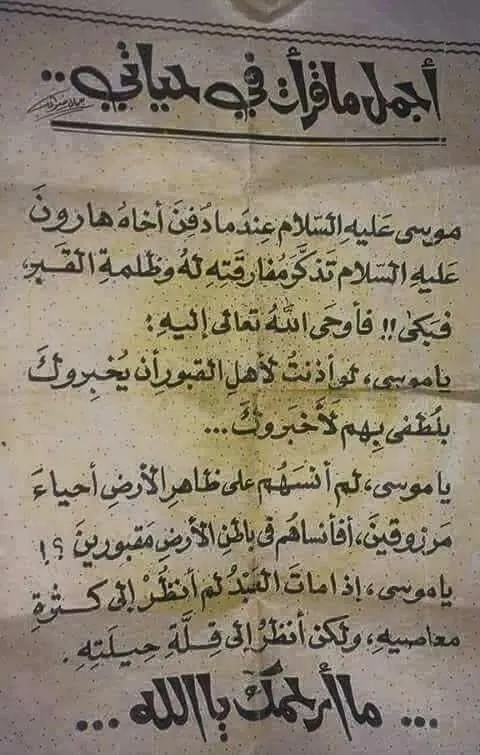 أجمل ما قرأت في حياتي..
موسى عليهِ السّلام عِندَما دُفنَ أخاهُ هارونَ
عَليهِ السّلام تذكَّرَ مُفارقتِهِ لهُ وظلمةِ القَبرِ،
فبَكىٰ!! فأوحَى اللهُ تعالى إليهِ:
ياموسى، لو أذنتُ لأهلِ القبورِ أن يُخبِروكَ
بلُطفي بِهم لَأخبَروكَ...
ياموسى، لم أنسَهُم على ظاهرِ الأرضِ أحياءَ
مَرزوقينَ، أفأنساهُم في باطنِ الأرضِ مَقبورينَ؟!
ياموسى، إذا ماتَ العَبْدُ لم أنظُرْ إلى كثرةِ
معاصيهِ، ولكن أنظرُ إلى قِلَّةِ حِيلَتِهِ.
... ما أرحمك يا الله ...